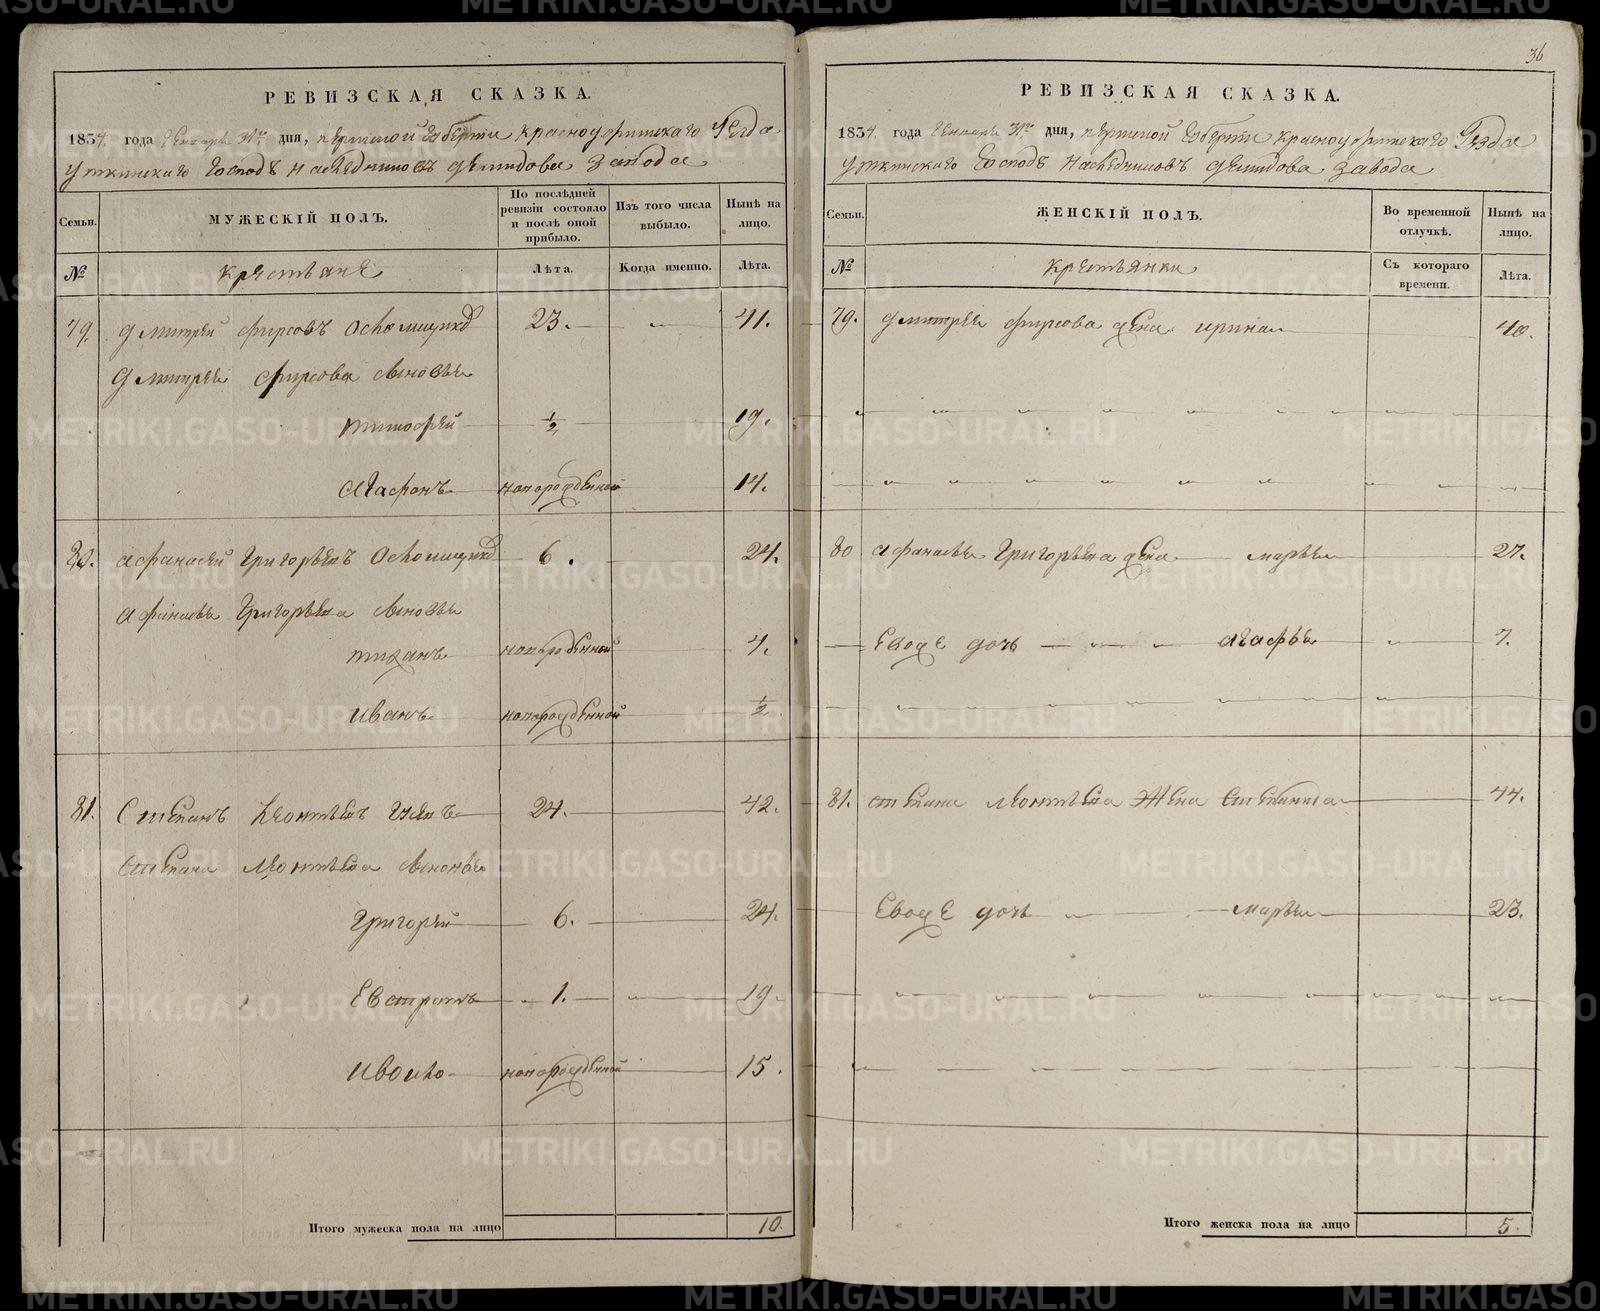 РЕВИЗСКАЯ СКАЗКА.
1834. года Генваря 31го дня, пермской губернiи красноуфимскаго Уезда
уткинскаго Господъ наследниковъ демидова завода
Семьи.
МУЖЕСКІЙ ПОЛЪ.
По послѣдней ревизіи состояло и послѣ оной прибыло.
Изъ того числа выбыло.
Нынѣ на лицо.
№
крестьяне
Лѣта.
Когда именно.
Лѣта.
79. дмитрей фирсовъ 23. 41.
дмитрея фирсова сыновья
тимофей ½ 19.
агафонъ новорожденной 14.
80. афанасей григорьевъ 6. 24.
афанасья григорьева сыновья
тиханъ новорожденной 4.
иванъ новорожденной ½
81. Степанъ леонтьевъ 24. 42.
степана леонтьева сыновья
григорей 6. 24.
Евстратъ 1. 19.
новорожденной 15.
Итого мужеска пола на лицо 10.
36
РЕВИЗСКАЯ СКАЗКА.
1834. года Генваря 31го дня, пермской губернiи красноуфимскаго Уезда
уткинскаго Господъ наследниковъ демидова завода
Семьи.
ЖЕНСКІЙ ПОЛЪ.
Во временной отлучкѣ.
Нынѣ на лицо.
№
крестьянки
Съ котораго времени.
Лѣта.
79. дмитрея фирсова жена ирина 40.
80 афанасья григорьева жена марья 27.
Евоже дочь агафья 7.
81. степана леонтьева жена степанида 44.
Евоже дочь марья 23.
Итого женска пола на лицо 5.
METRIKI.GASO-URAL.RU